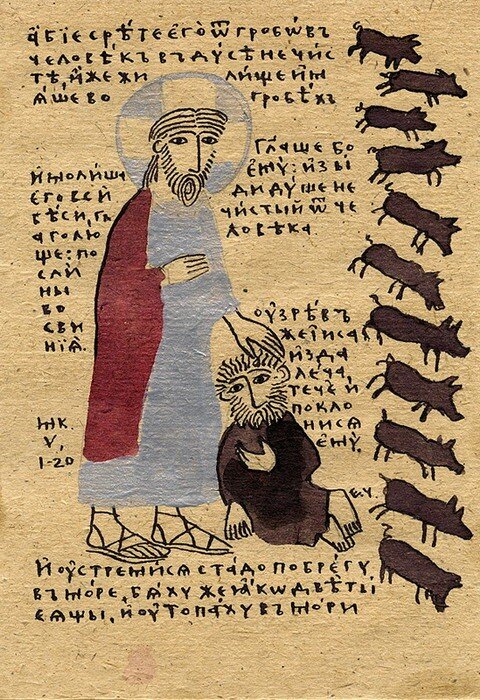 АБІЕ СРѢТЕ ЕГО Ѿ ГРОБѠВЪ
ЧЕЛОВѢКЪ ВЪ ДУСѢ НЕЧИС
ТѢ, ИЖЕ ЖИ ЛИЩЕ ИМ
ѦШЕ ВО ГРОБѢХЪ
ГЛАШЕ БО
ЕМУ: ИЗЫ
ДИ ДУШЕ НЕ
ЧИСТЫЙ Ѿ ЧЕ
ЛОВѢКА
И МОЛИША
ЕГО ВСИ
БѢСИ, ГЛ
АГОЛЮ
ЩЕ: ПО
СЛИ
НЫ
ВО
СВИ
НІѦ.
ОУЗРѢВЪ
ЖЕ ІИСА
ИЗДА
ЛЕЧА,
ТЕЧЕ И
ПОКЛО
НИСѦ
ЕМУ.
МК.
V,
1-20
И ОУСТРЕМИСѦ СТАДО ПО БРЕГУ
ВЪ МОРЕ, БѦХУ ЖЕ ІАКѠ ДВѢ ТЫ
СѦЩЫ, И ОУТОПАХУ ВЪ МОРИ